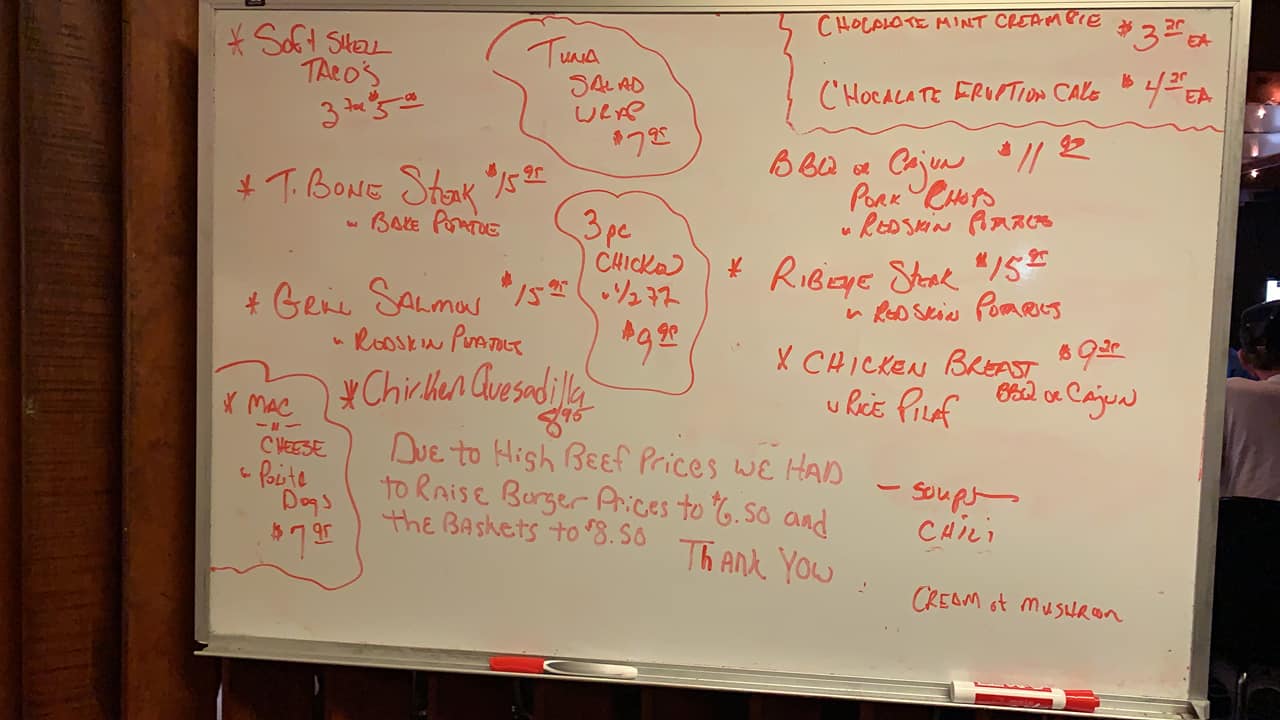 * Soft SHELL
TACO'S
3 FOR $5.00
* T. BONE STEAK $15.95
w BAKE POTATOE
* GRILL SALMON $15.95
w REDSKIN POTATOES
* MAC
-N-
CHEESE
w
Dogs
$7.95
* Chicken Quesadilla
8.95
TUNA
SALAD
WRAP
$7.95
3 pc
CHICKEN
$9.95
CHOCALATE MINT CREAM PIE $3.25 EA
CHOCALATE ERUPTION CAKE $4.25 EA
BBQ or CAJUN $11
PORK CHOPS
w REDSKIN POTATOES
* RIBEYE STEAK $15.95
w REDSKIN POTATOES
X CHICKEN BREAST $9.25
BBQ or CAJUN
w RICE PILAF
DUE to High BEEF PRICES WE HAD
to RAISE Burger Prices to $6.50 and
the BASKETS to $8.50
THANK YOU
- Soups -
CHILI
CREAM of MUSHROOM